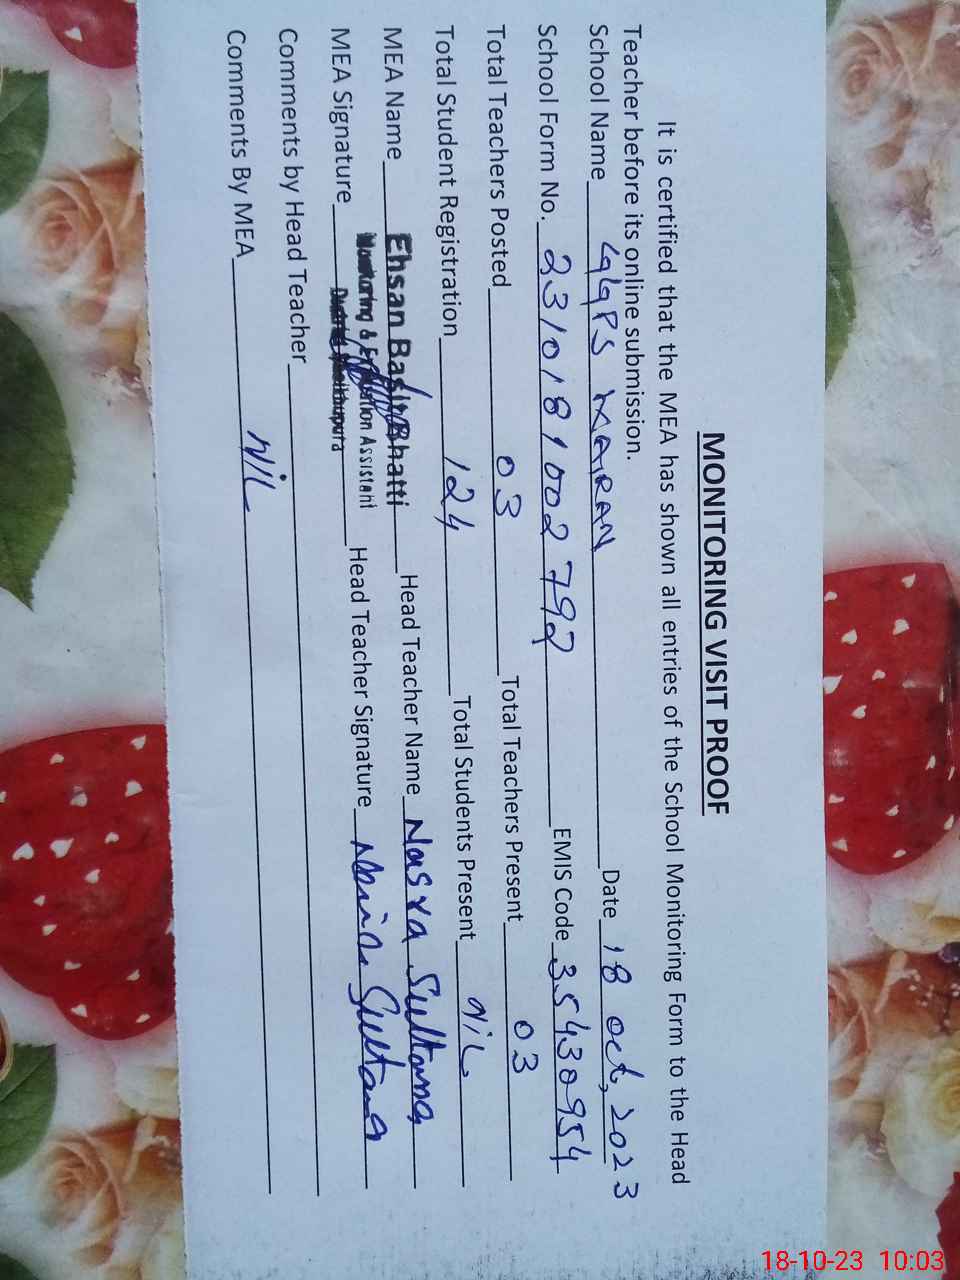 MONITORING VISIT PROOF
It is certified that the MEA has shown all entries of the School Monitoring Form to the Head
Teacher before its online submission.
School Name GGPS MAIRAN Date 18 Oct, 2023
School Form No. 2310181002792 EMIS Code 35430954
Total Teachers Posted 03 Total Teachers Present 03
Total Student Registration 124 Total Students Present NiL
MEA Name Ehsan Basit Bhatti Head Teacher Name Nasra Sultana
Monitoring & Evaluation Assistant
MEA Signature Head Teacher Signature Sultana
Comments by Head Teacher
Comments By MEA NiL
18-10-23 10:03